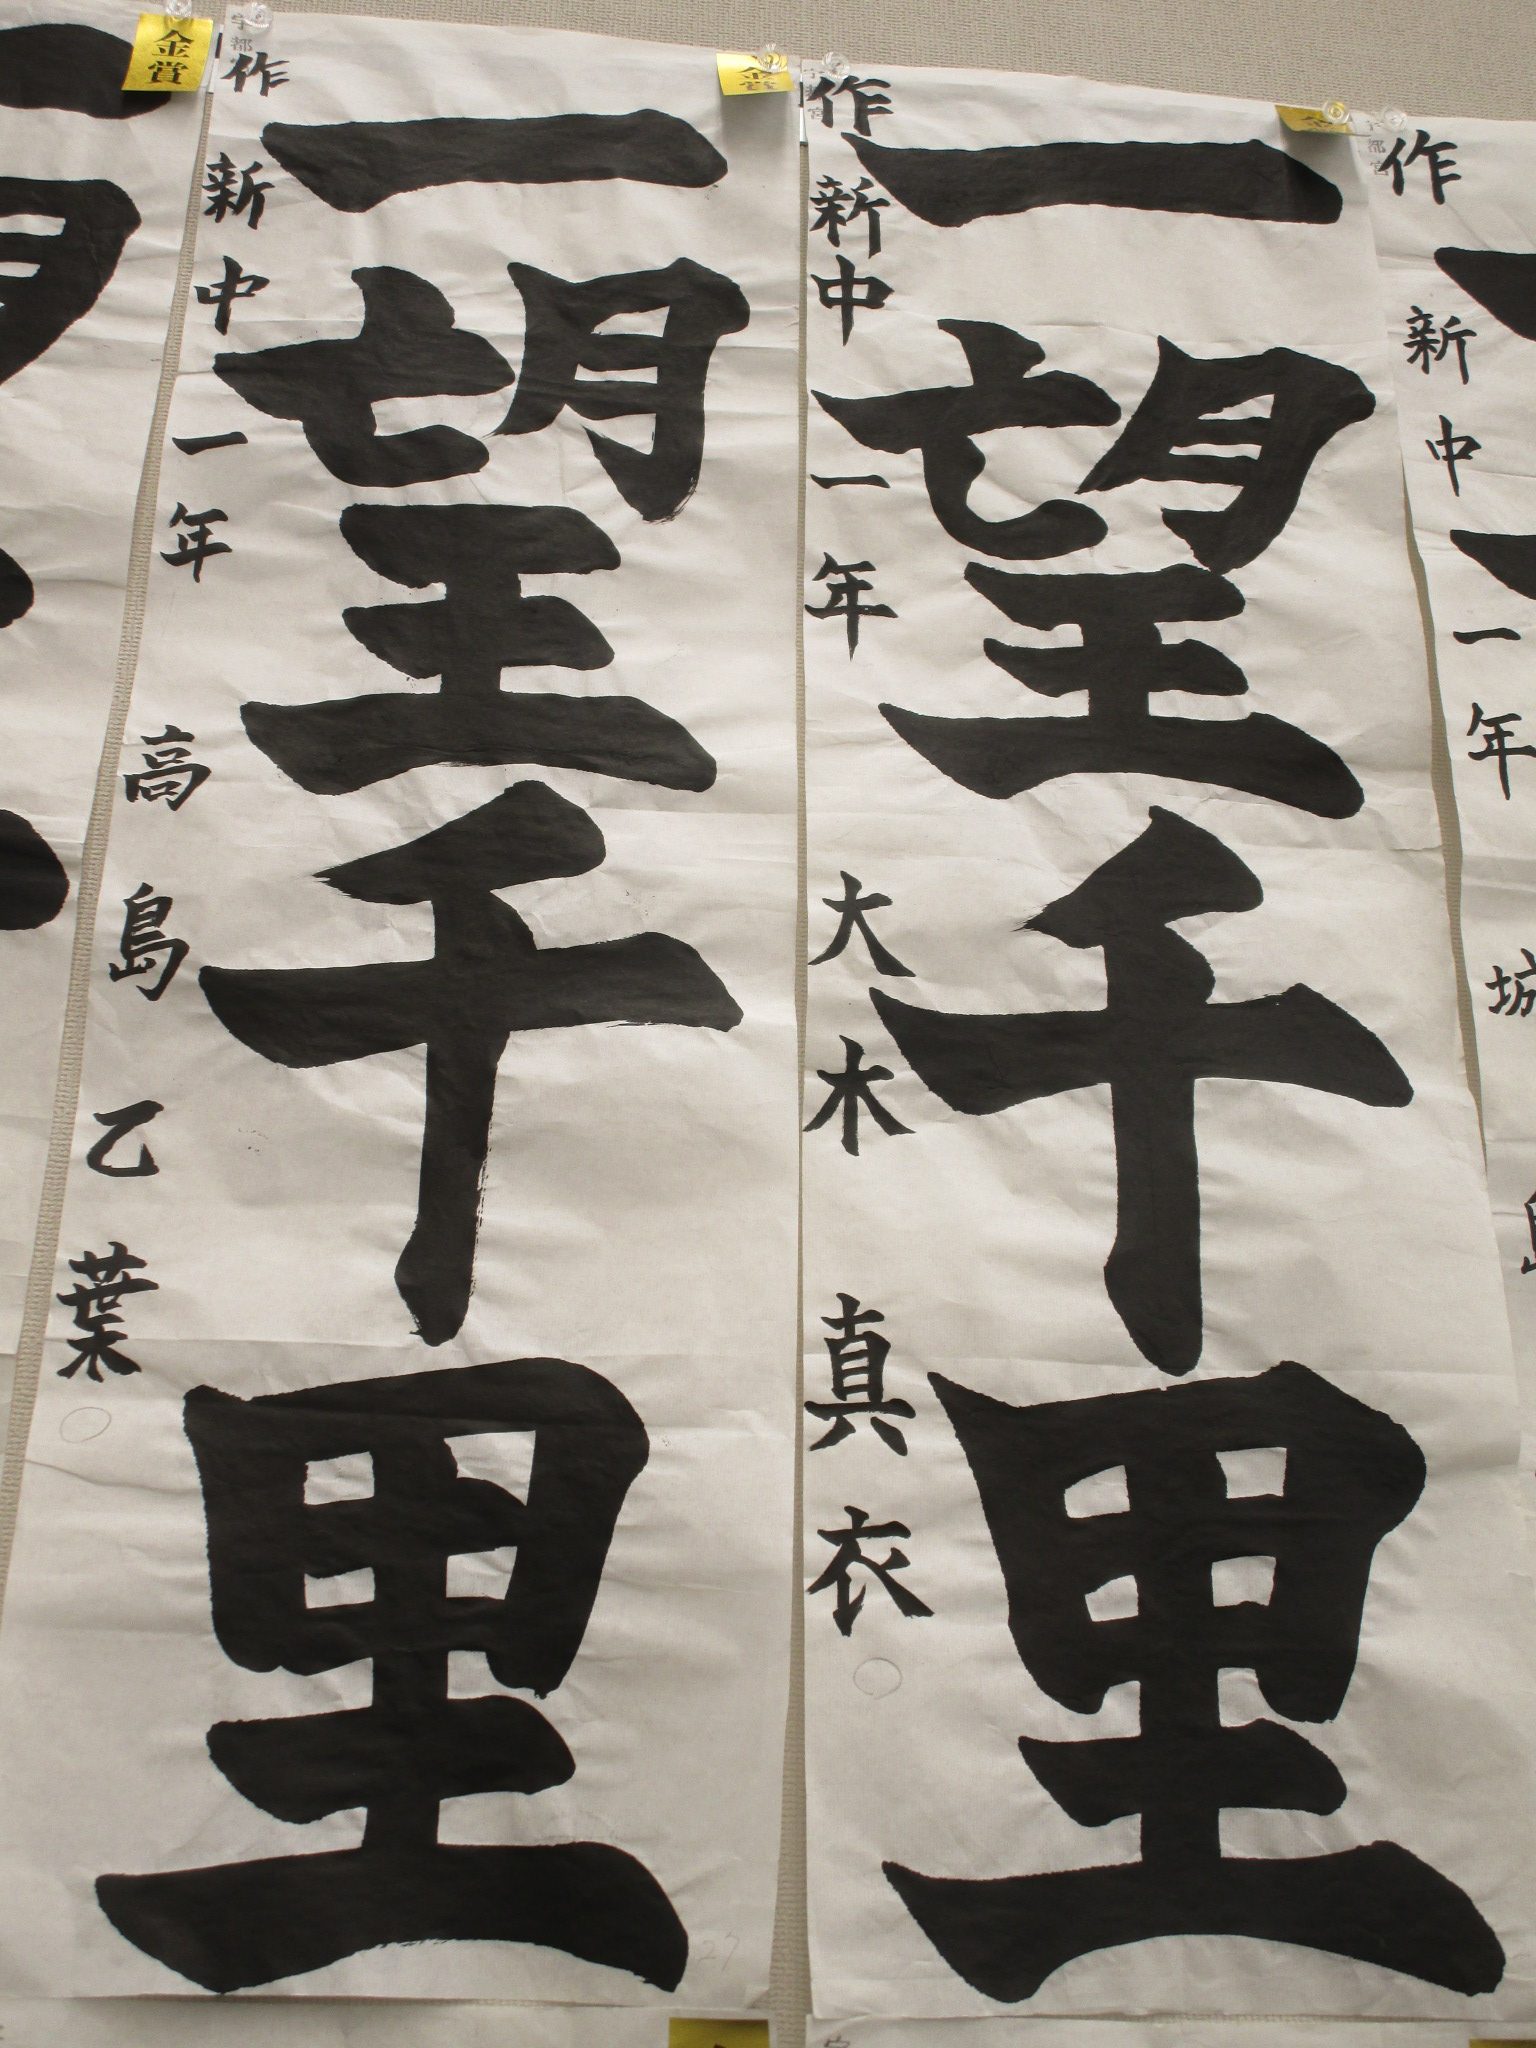 金賞
一望千里
作新中一年 高島乙葉
金賞
一望千里
作新中一年 大木真衣
作新中一年 坂
27